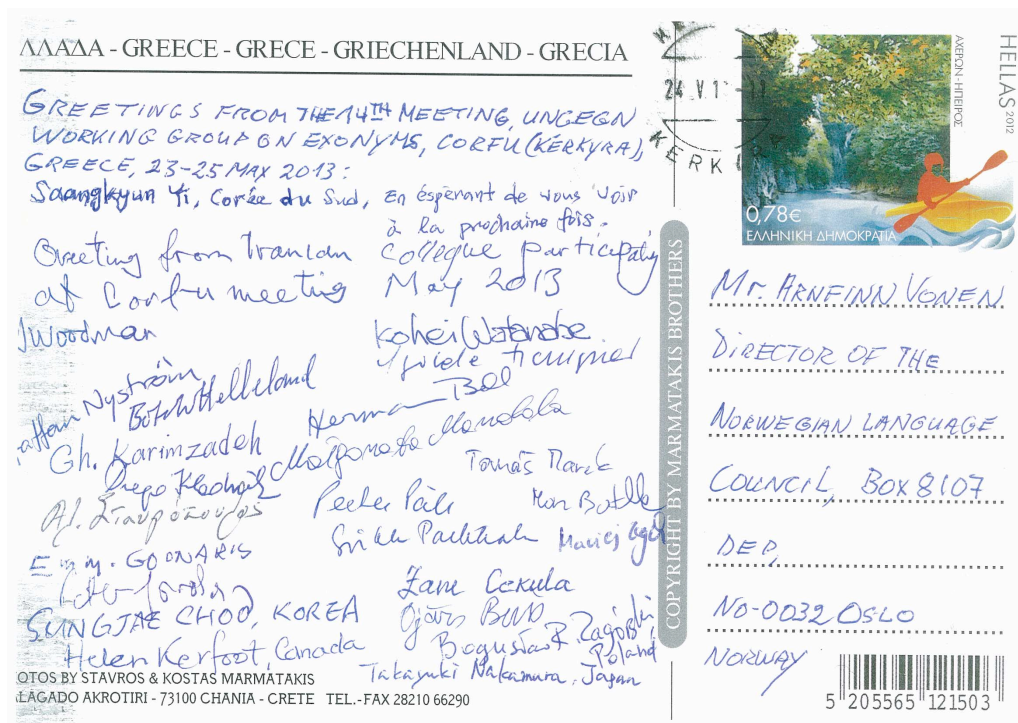 ΛΛΑΔΑ - GREECE - GRECE - GRIECHENLAND - GRECIA
GREETINGS FROM THE 14TH MEETING, UNGEGN
WORKING GROUP ON EXONYMS, CORFU (KÉRKYRA),
GREECE, 23-25 MAY 2013:
Saangkyun Yi, Corée du Sud, en éspérant de vous voir
à la prochaine fois.
Greeting from Iranian Colleque participating
at Corfu meeting May 2013
Woodman
Kohei Watanabe
Nyström
Botolv Helleland
Herman Bell
Gh. Karimzadeh
Drago Kladnik
Małgorzata Mandola
Tomáš Marek
Αλ. Σταυρόπουλος
Peeter Päll
Mon Botlle
Sirkka Paikkala
Maciej Zych
Emm. GOONARIS
Zane Cekula
SUNGJAE CHOO, KOREA
Bogusław R. Zagórski
Poland
Helen Kerfoot, Canada
Takayuki Nakamura, Japan
OTOS BY STAVROS & KOSTAS MARMATAKIS
LAGADO AKROTIRI - 73100 CHANIA - CRETE TEL.-FAX 28210 66290
COPYRIGHT BY MARMATAKIS BROTHERS
24.V.1
KERK
HELLAS 2012
ΑΧΕΡΩΝ - ΗΠΕΙΡΟΣ
0,78€
ΕΛΛΗΝΙΚΗ ΔΗΜΟΚΡΑΤΙΑ
Mr. ARNFINN VONEN
DIRECTOR OF THE
NORWEGIAN LANGUAGE
COUNCIL, BOX 8107
DEP,
NO-0032 OSLO
NORWAY
5 205565 121503